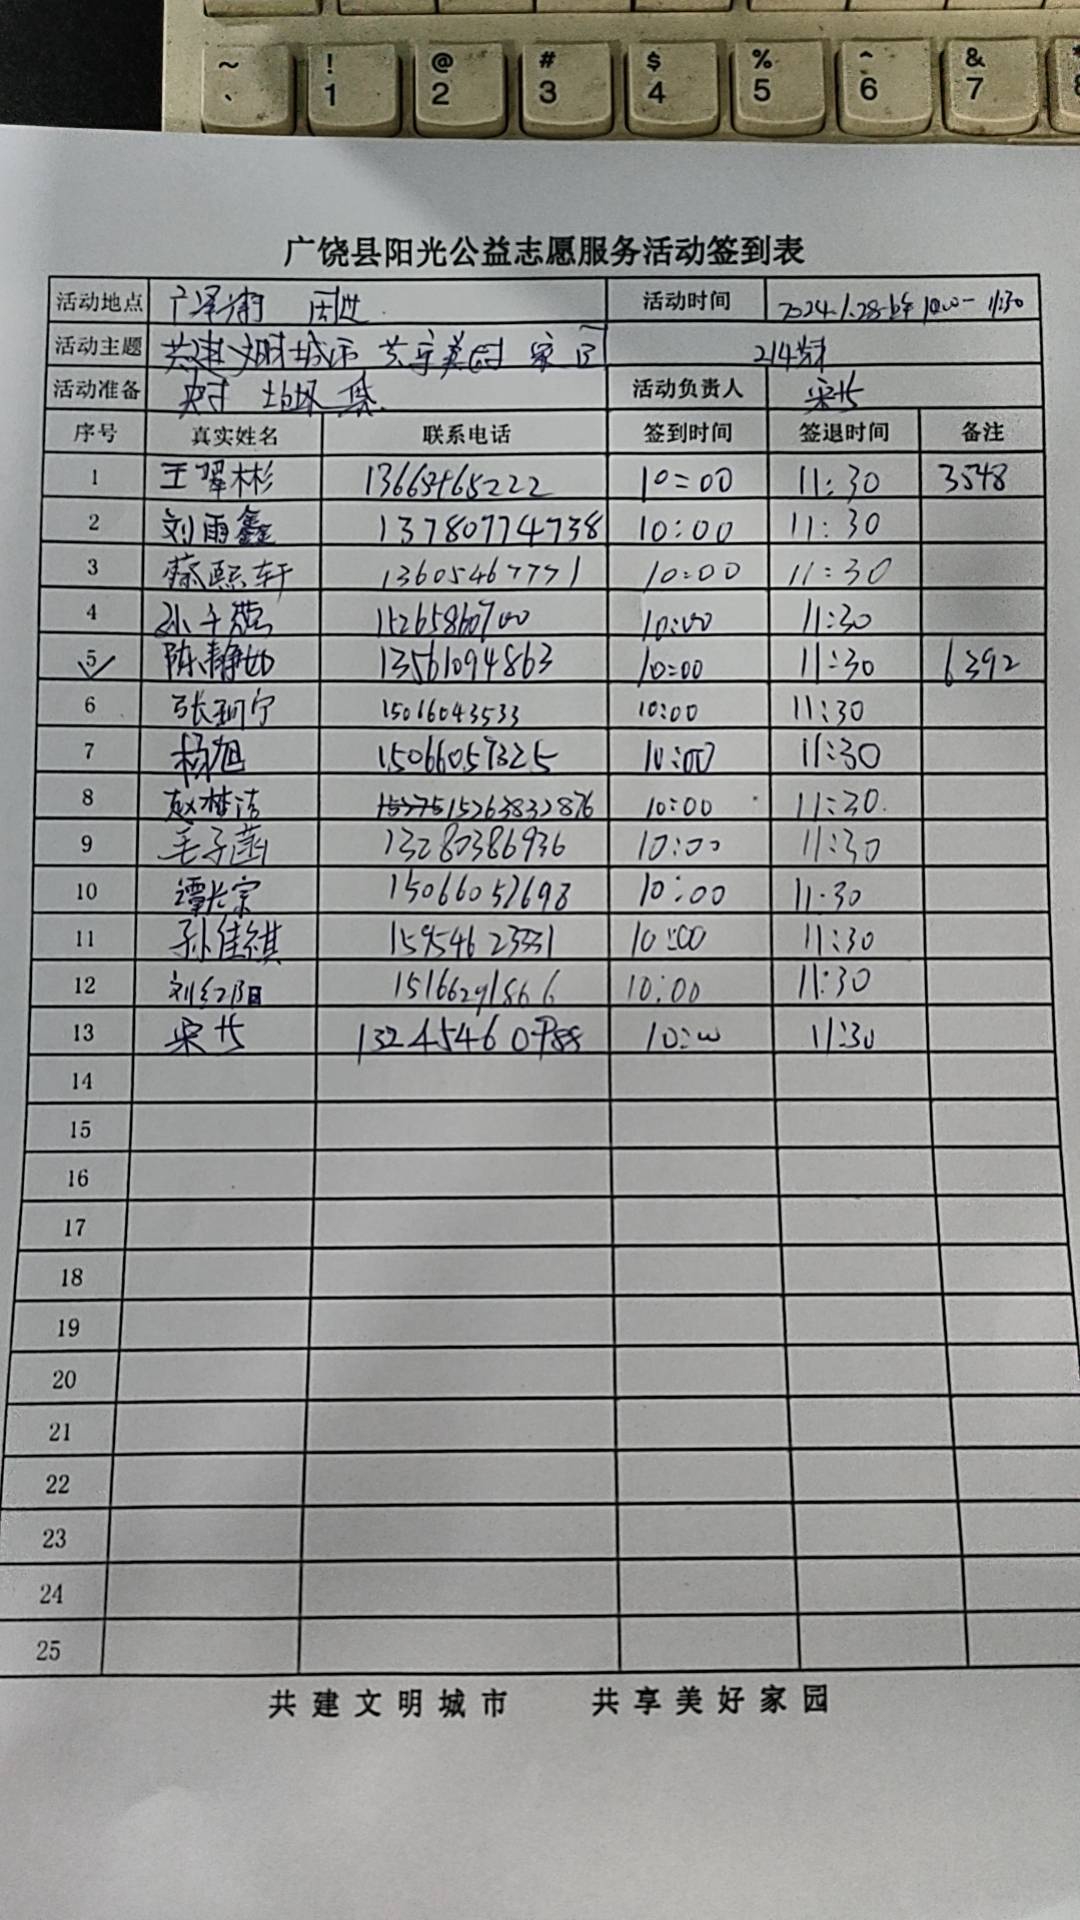 ~ ! @ # $ % ^ &
、 1 2 3 4 5 6 7
广饶县阳光公益志愿服务活动签到表
活动地点 周边 活动时间 2024.1.28 上午10:00-11:30
活动主题 共建文明城市 共享美好家园
活动准备 垃圾袋 活动负责人
序号 真实姓名 联系电话 签到时间 签退时间 备注
1 王翠彬 13665465222 10:00 11:30 3548
2 刘雨鑫 13780774738 10:00 11:30
3 蔡熙轩 13605467771 10:00 11:30
4 15265860700 10:00 11:30
5 陈静如 13561094863 10:00 11:30 6392
6 张珂宁 15066043533 10:00 11:30
7 杨旭 15066057325 10:00 11:30
8 赵梦洁 15263832876 10:00 11:30
9 毛子菡 13280386936 10:00 11:30
10 谭长宗 15066052698 10:00 11:30
11 孙佳祺 15954623331 10:00 11:30
12 刘红阳 15166291866 10:00 11:30
13 10:00 11:30
14
15
16
17
18
19
20
21
22
23
24
25
共建文明城市 共享美好家园